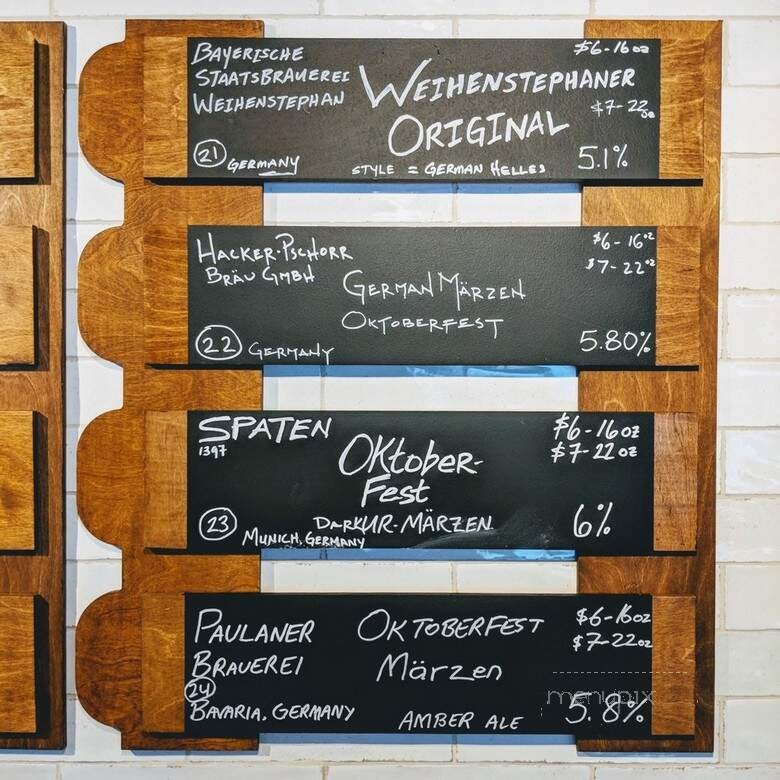 BAYERISCHE
STAATSBRAUEREI
WEIHENSTEPHAN
WEIHENSTEPHANER
ORIGINAL
$6-16oz
$7-22oz
21 GERMANY
STYLE = GERMAN HELLES
5.1%
HACKER-PSCHORR
BRÄU GMBH
GERMAN MÄRZEN
OKTOBERFEST
$6-16oz
$7-22oz
22 GERMANY
5.80%
SPATEN
1397
OKtober-
Fest
DarKUR-MÄRZEN
$6-16oz
$7-22oz
23 MUNICH, GERMANY
6%
PAULANER
BRAUEREI
24
BAVARIA, GERMANY
OKTOBERFEST
Märzen
AMBER ALE
$6-16oz
$7-22oz
5.8%
menupix